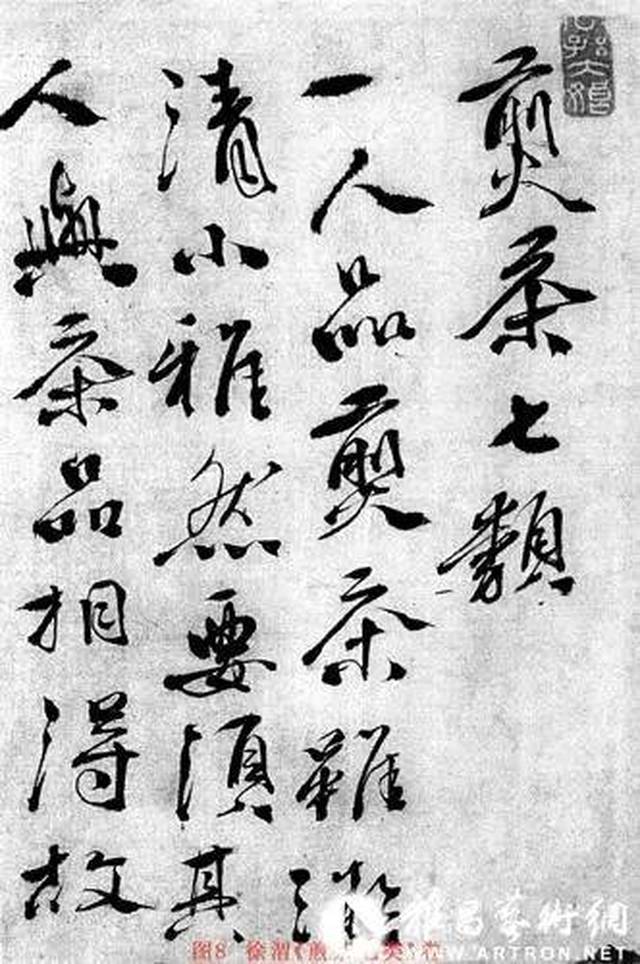 煎茶七類
一人品煎茶雖
清小雅然要須其
人與茶品相得故
图8 徐渭《煎 类》
雅昌藝術網
WWW.ARTRON.NET